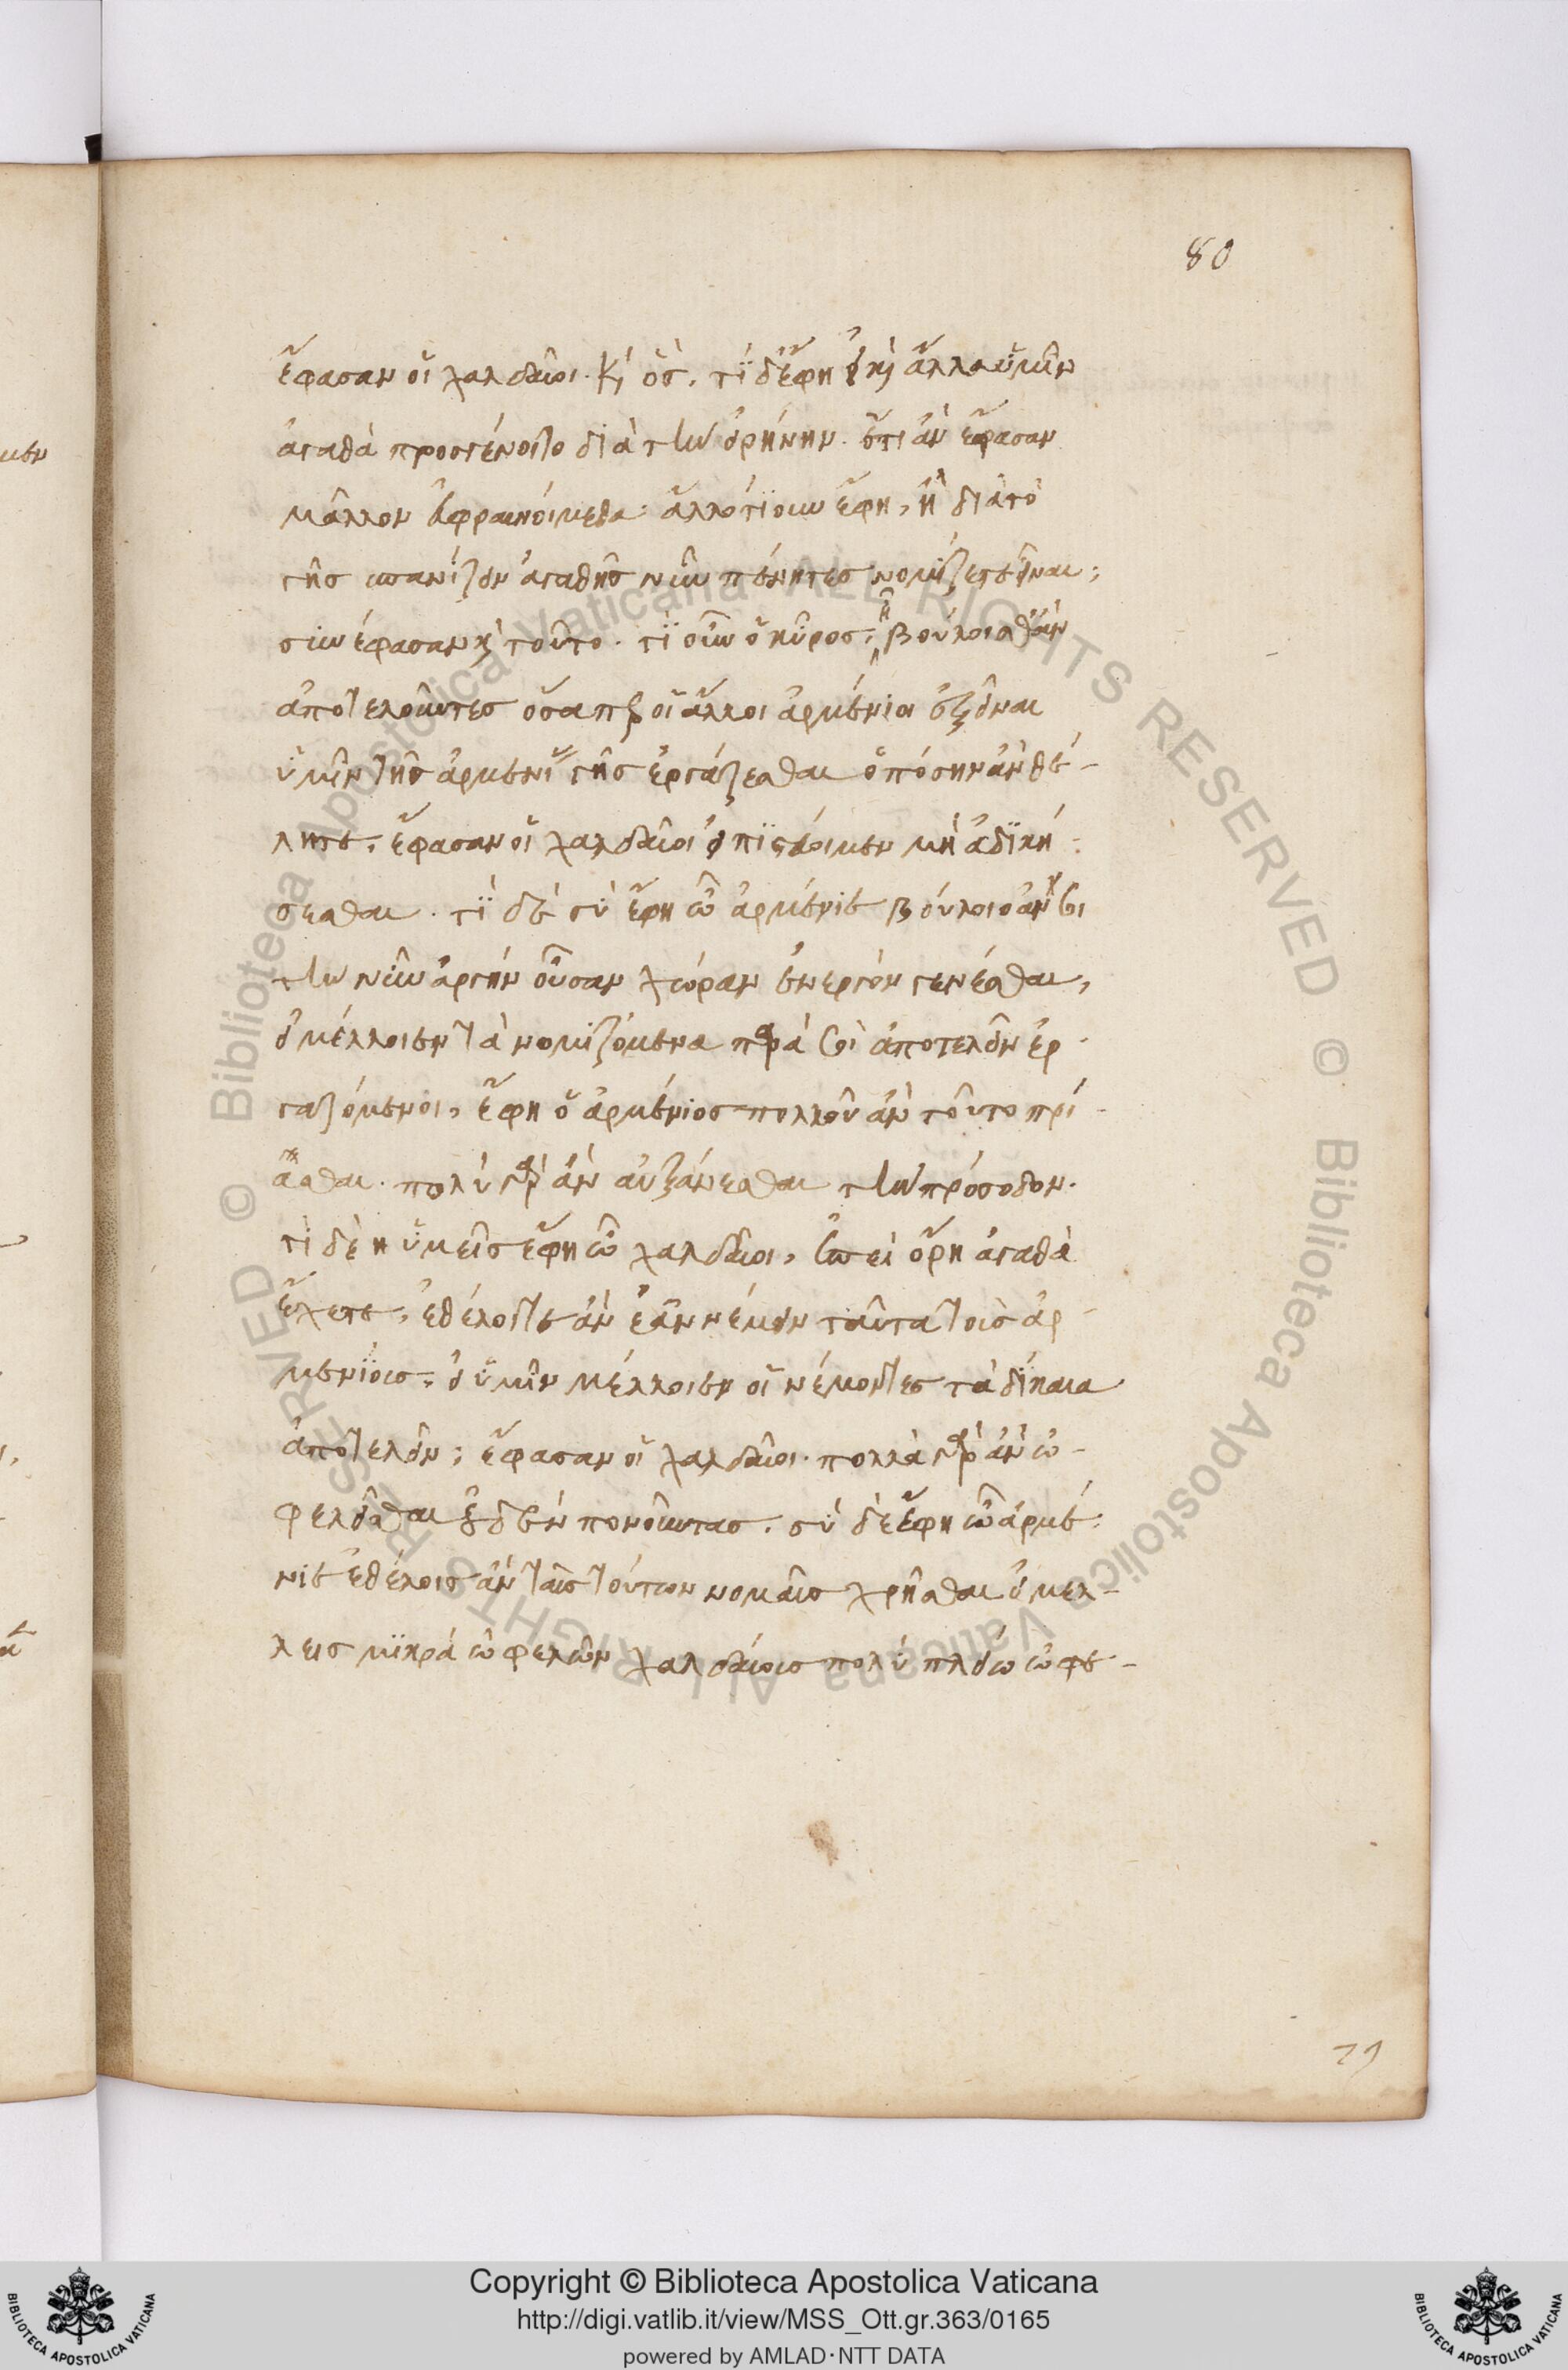 80
ἔφασαν οἱ χαλδαῖοι. καὶ ὅς. τί δ' ἔφη εἰ καὶ ἄλλα ὑμῖν
ἀγαθὰ προσγένοιτο διὰ τὴν εἰρήνην. ἔτι ἂν ἔφασαν
μᾶλλον εὐφραινοίμεθα. ἄλλο τί οὖν ἔφη, ἢ διὰ τὸ
γῆς σπανίζειν ἀγαθῆς νῦν πένητες νομίζετε εἶναι;
συνέφασαν καὶ τοῦτο. τί οὖν ὁ κῦρος. ἦ βούλοισθ' ἂν
ἀποτελοῦντες ὅσαπερ οἱ ἄλλοι ἀρμένιοι ἐξεῖναι
ὑμῖν τῆς ἀρμενίας γῆς ἐργάζεσθαι ὁπόσην ἂν θέ-
λητε. ἔφασαν οἱ χαλδαῖοι εἰ πιστεύοιμεν μὴ ἀδική-
σεσθαι. τί δὲ σὺ ἔφη ὦ ἀρμένιε βούλοιο ἄν σοι
τὴν νῦν ἀργὴν οὖσαν χώραν ἐνεργὸν γενέσθαι,
εἰ μέλλοιεν τὰ νομιζόμενα παρά σοι ἀποτελεῖν ἐρ-
γαζόμενοι, ἔφη ὁ ἀρμένιος πολλοῦ ἂν τοῦτο πρί-
ασθαι. πολὺ γὰρ ἂν αὐξάνεσθαι τὴν πρόσοδον.
τί δὲ ὑμεῖς ἔφη ὦ χαλδαῖοι, ἐπεὶ ὄρη ἀγαθὰ
ἔχετε, ἐθέλοιτε ἂν ἐᾶν νέμειν ταῦτα τοῖς ἀρ-
μενίοις. εἰ ὑμῖν μέλλοιεν οἱ νέμοντες τὰ δίκαια
ἀποτελεῖν; ἔφασαν οἱ χαλδαῖοι. πολλὰ γὰρ ἂν ὠ-
φελεῖσθαι οὐδὲν πονοῦντας. σὺ δὲ ἔφη ὦ ἀρμέ-
νιε ἐθέλοις ἂν ταῖς τούτων νομαῖς χρῆσθαι εἰ μέλ-
λεις μικρὰ ὠφελῶν χαλδαίοις πολὺ πλείω ὠφε-
79
Copyright © Biblioteca Apostolica Vaticana
http://digi.vatlib.it/view/MSS_Ott.gr.363/0165
powered by AMLAD·NTT DATA